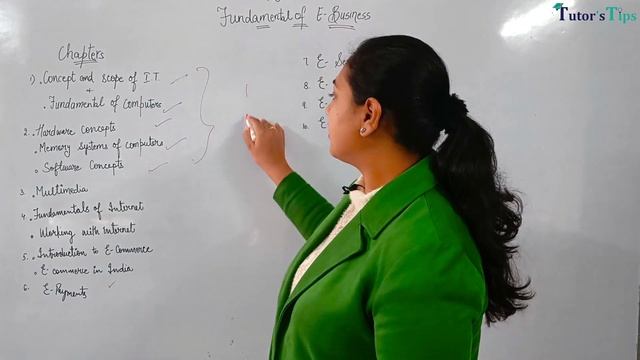 Tutor'sTips
Fundamental of E-Business
Chapters
1) . Concept and scope of I.T.
+
. Fundamental of Computers
2. . Hardware Concepts
. Memory Systems of computers
. Software Concepts
3. . Multimedia
4. . Fundamentals of Internet
. Working with internet
5. . Introduction to E-Commerce
. E commerce in India
6. E-Payments
7. E-
8. E
9. E
10. E